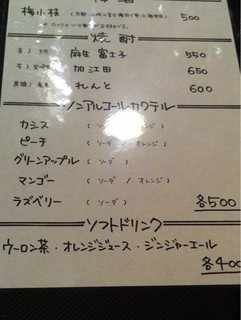 梅小枝 500
焼酎
麻生富士子 550
加江田 650
黒糖 れんと 600
ノンアルコールカクテル
カシス (ソーダ / オレンジ)
ピーチ (ソーダ / オレンジ)
グリーンアップル (ソーダ)
マンゴー (ソーダ / オレンジ)
ラズベリー (ソーダ) 各500
ソフトドリンク
ウーロン茶・オレンジジュース・ジンジャーエール
各400